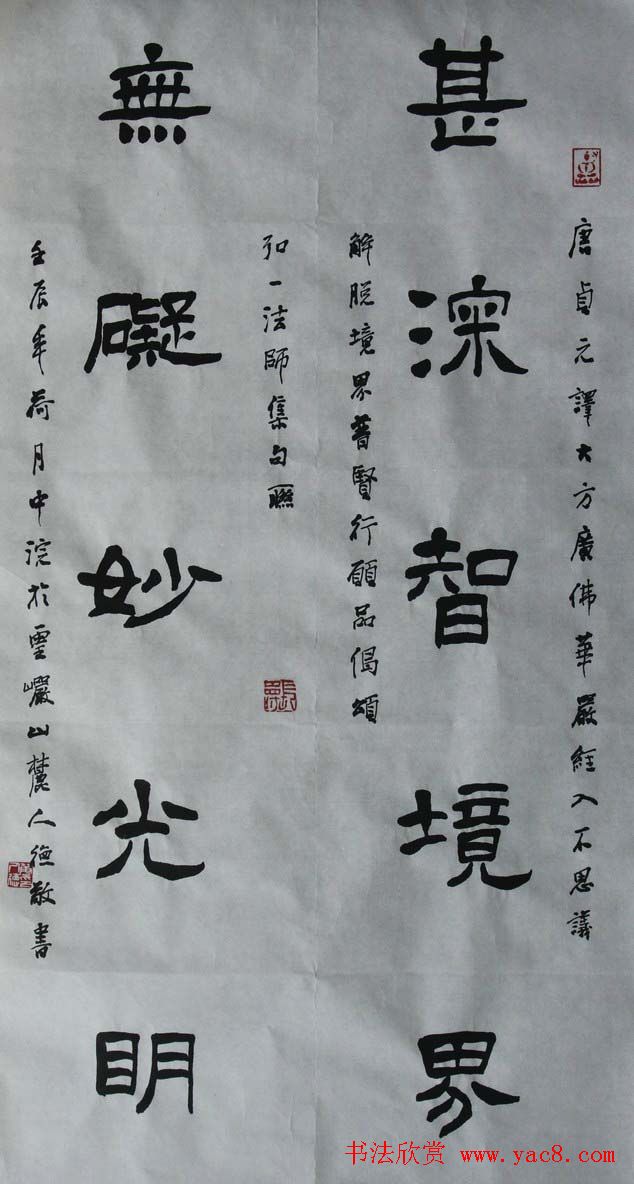 唐貞元譯大方廣佛華嚴經入不思議
甚深智境界
解脫境界普賢行願品偈頌
弘一法師集句聯
無礙妙光明
壬辰年荷月中浣於靈巖山麓人德敬書
书法欣赏 www.yac8.com